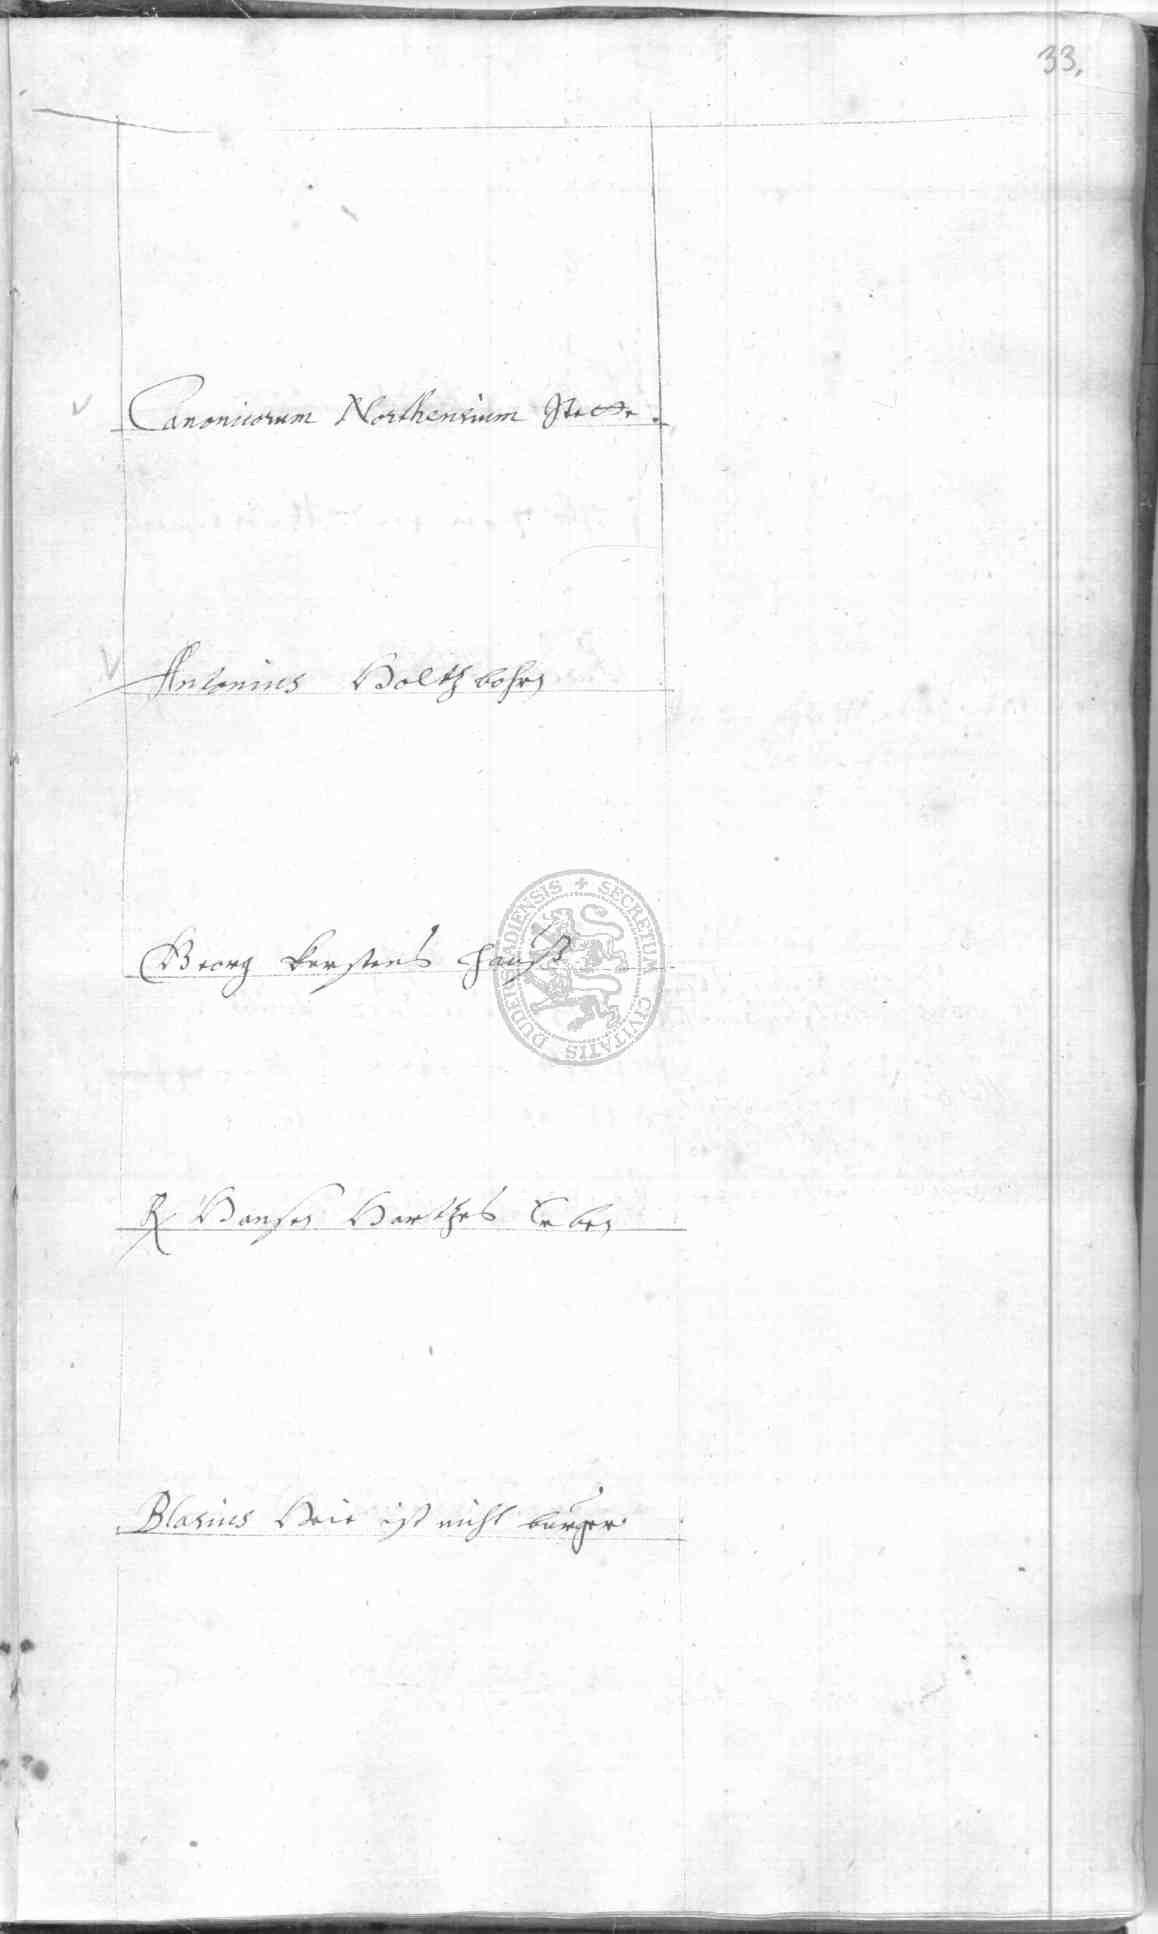 33.
Canonicorum Northensium Stette.
Antonius Holtzborn
Georg Kerstens hauß
Hansen Barthes Erben
Blasius Heie ist nicht bürger
SECRETUM CIVITATIS DUDERSTADIENSIS